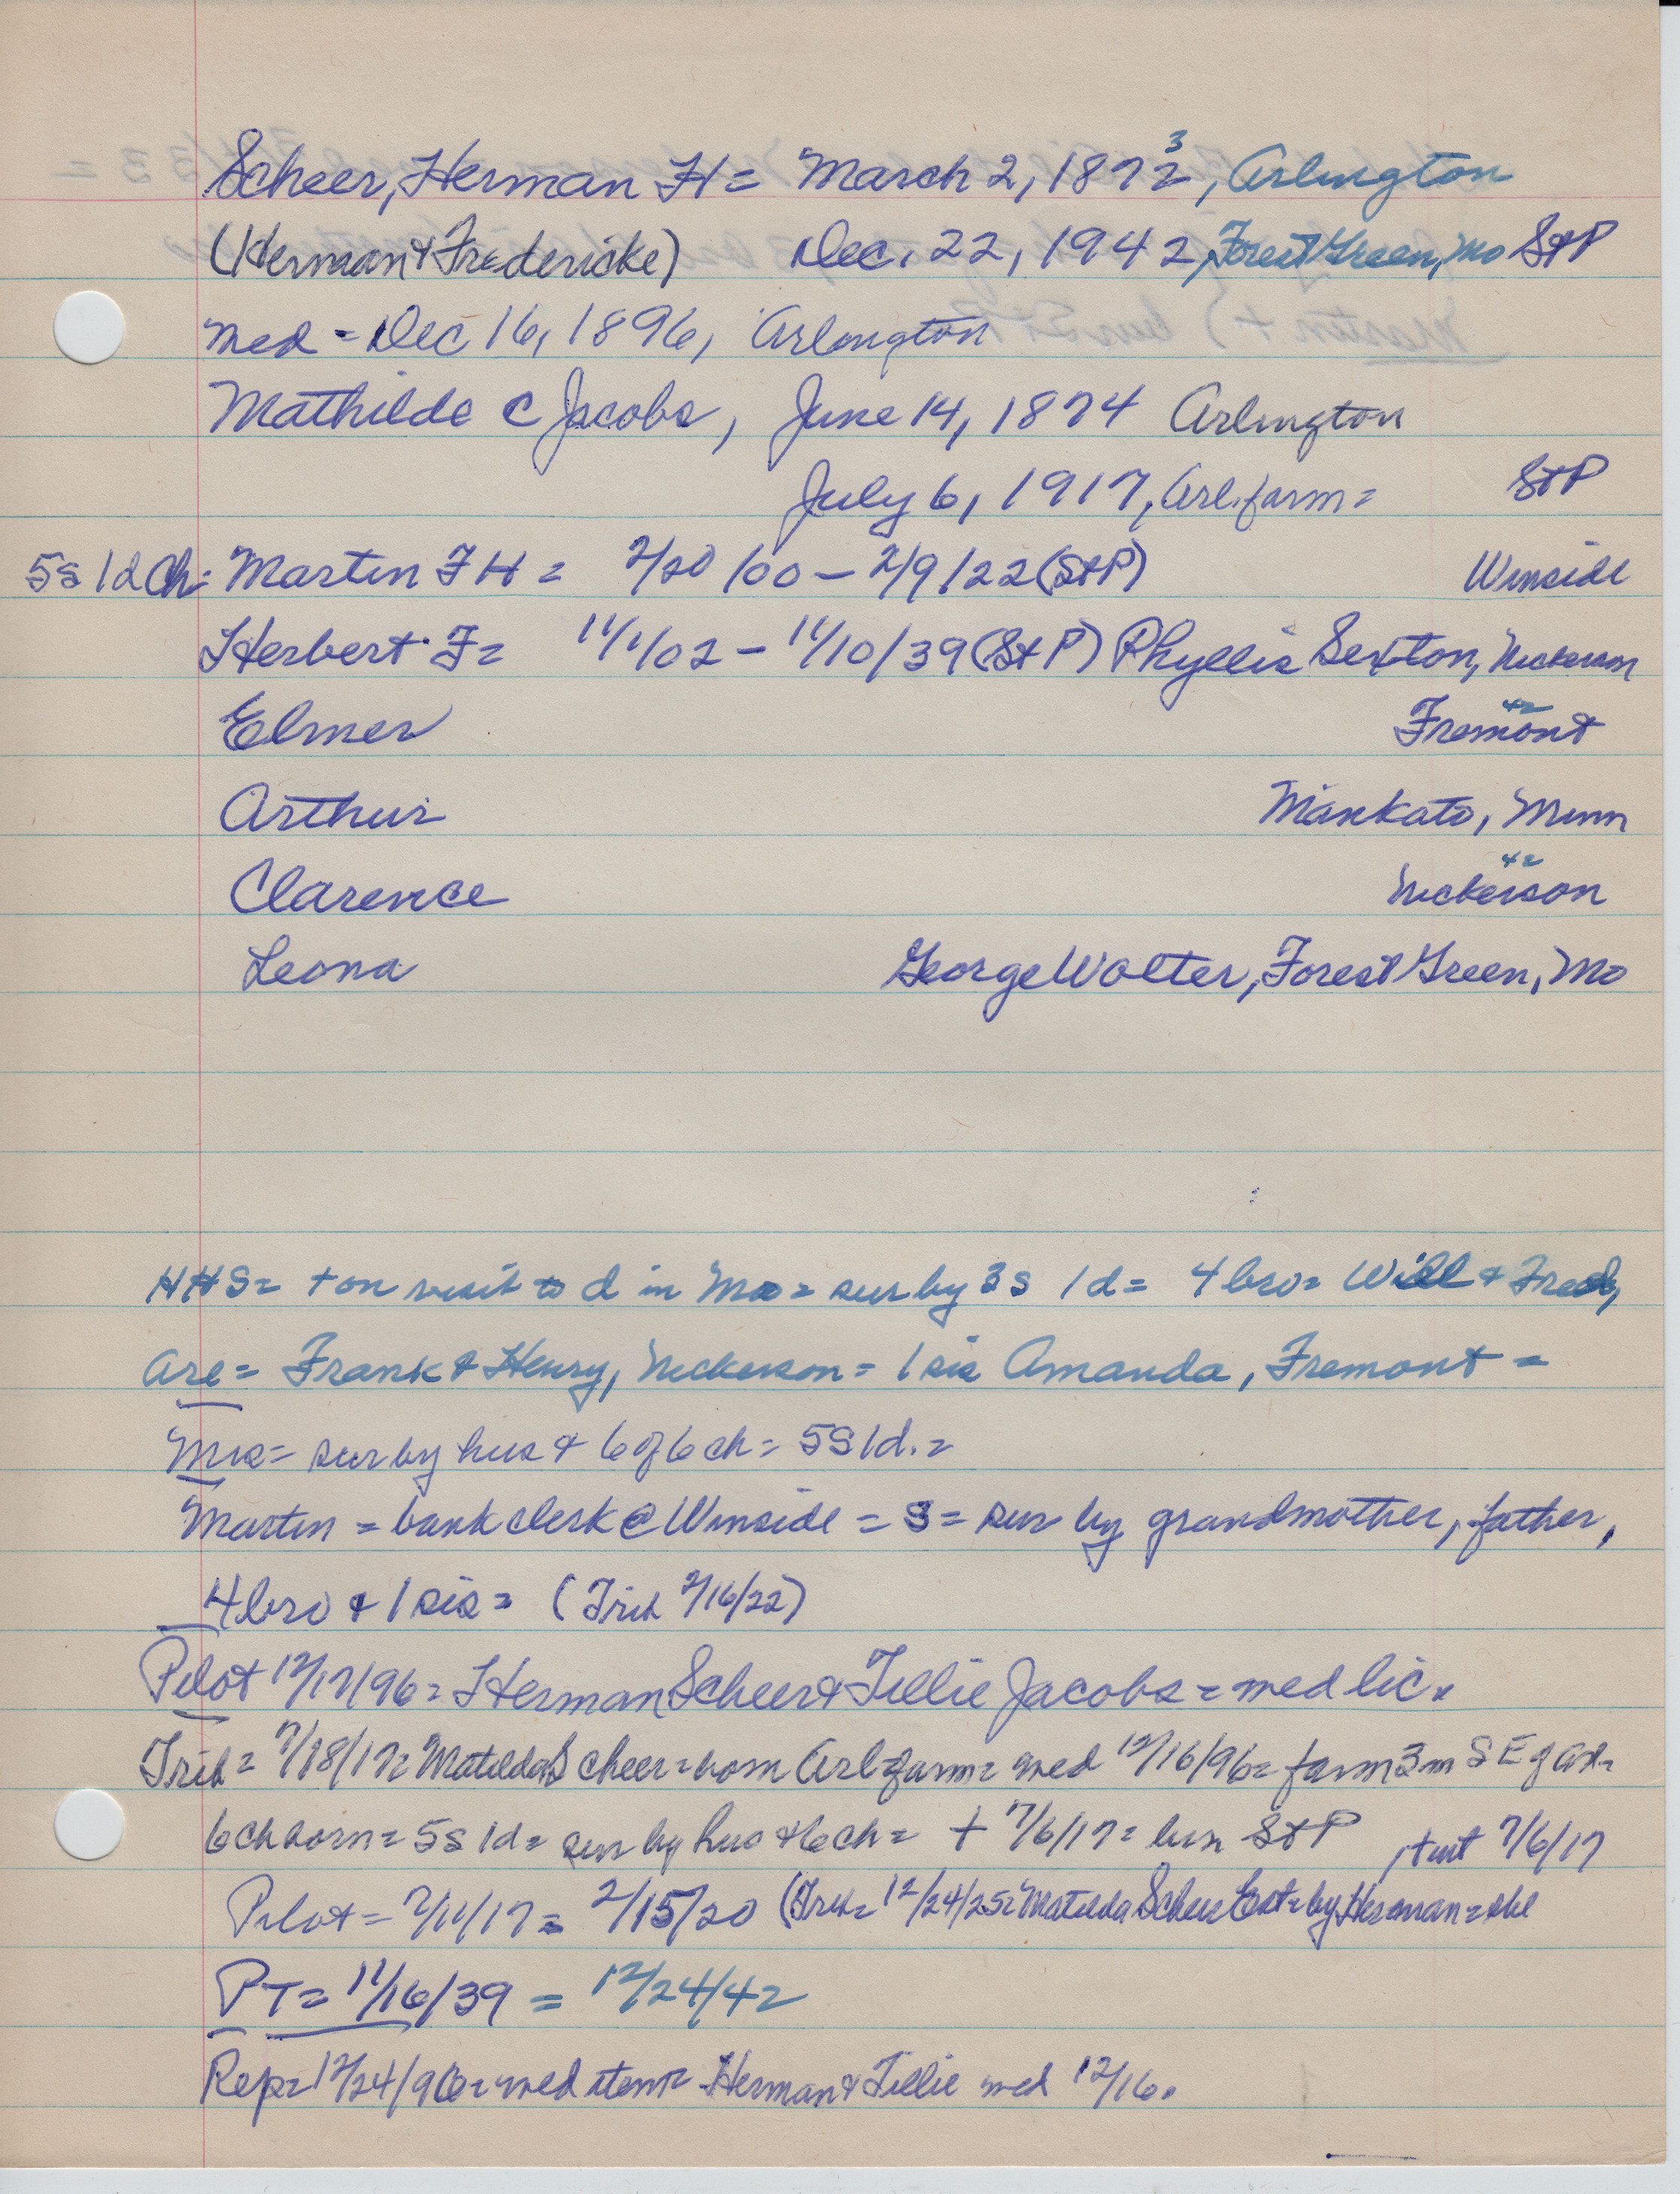 Scheer, Herman H = March 2, 1872 3, Arlington
(Herman & Fredericke) Dec. 22, 1942, Forest Green, Mo St P
med = Dec 16, 1896, Arlington
Mathilde C Jacobs, June 14, 1874 Arlington
July 6, 1917, Arl. farm = St P
5s 1d Ch: Martin F H = 2/20/00 - 2/9/22 (St P) Winside
Herbert F = 11/1/02 - 11/10/39 (St P) Phyllis Sexton, Nickerson
Elmer Fremont 42
Arthur Mankato, Minn
Clarence Nickerson 42
Leona George Wolter, Forest Green, Mo
HHS = + on visit to d in Mo = sur by 3s 1d = 4 bro = Will & Fred,
Arl = Frank & Henry, Nickerson = 1 sis Amanda, Fremont =
Mrs = sur by hus & 6 of 6 ch = 5s 1d. =
Martin = bank clerk @ Winside = S = sur by grandmother, father,
4 bro & 1 sis = (Trib 2/16/22)
Pilot 12/17/96 = Herman Scheer & Tillie Jacobs = med lic.
Trib = 7/18/17 = Matilda Scheer = born Arl farm = med 12/16/96 = farm 3 m SE of Arl =
6 ch born = 5s 1d = sur by hus & 6 ch = + 7/6/17 = bur St P 7/6/17
Pilot = 7/11/17 = 2/15/20 (Trib = 12/24/25 = Matilda Scheer Est = by Herman =
PT = 11/16/39 = 12/24/42
Rep = 12/24/96 = med item = Herman & Tillie med 12/16.